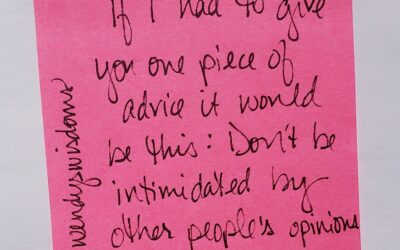 If I had to give
you one piece of
advice it would
be this: Don't be
intimidated by
other people's opinions
wendyswisdoms